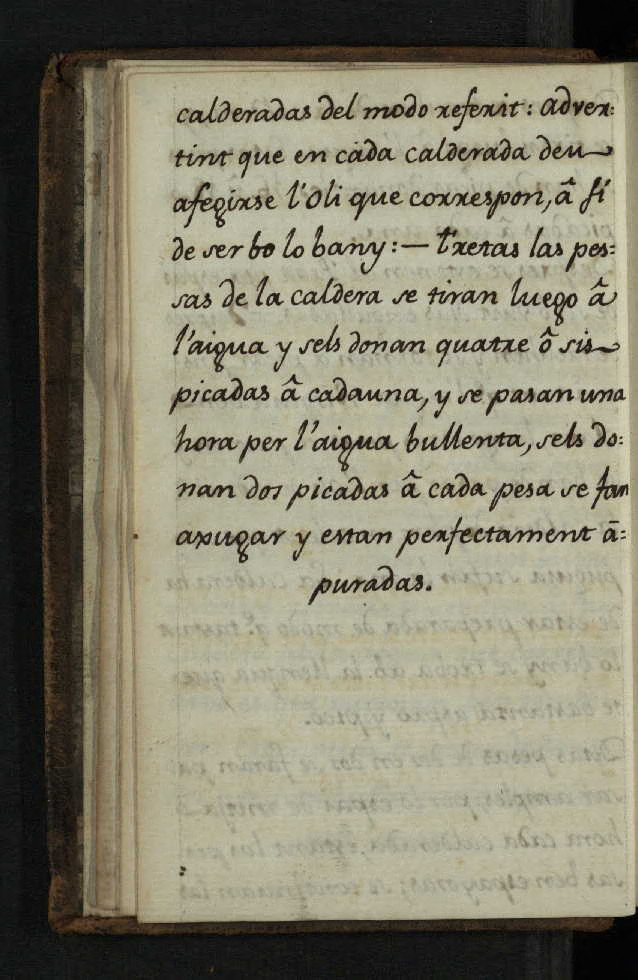 calderadas del modo referit: adver:
tint que en cada calderada deu
afegirse l'Oli que correspon, â fí
de ser bo lo bany: — tretas las pes:
sas de la caldera se tiran luego â
l'aigua y sels donan quatre ô sis
picadas â cadauna, y se pasan una
hora per l'aigua bullenta, sels do:
nan dos picadas â cada pesa se fan
axugar y estan perfectament â=
puradas.